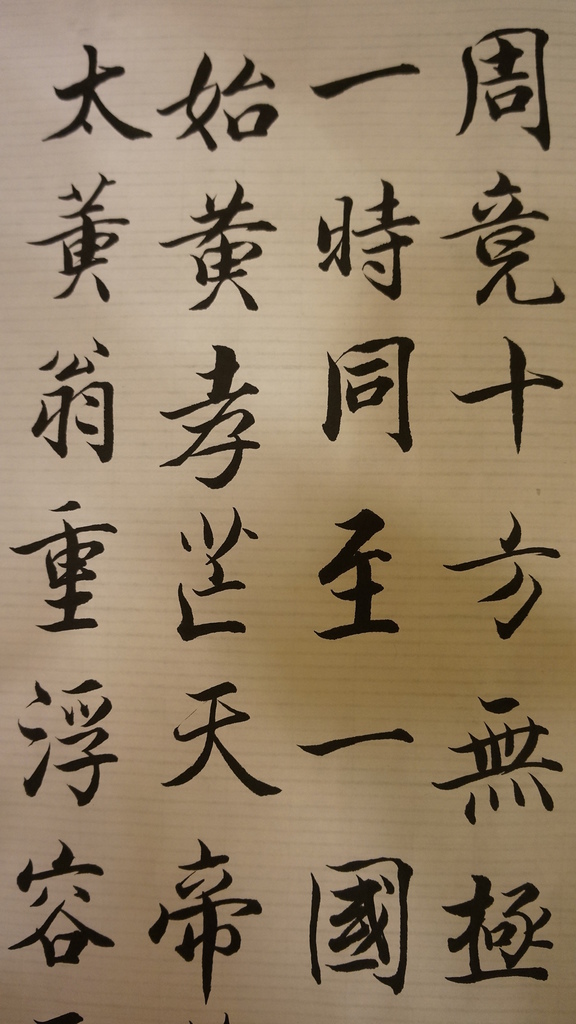 周竟十方無極
一時同至一國
始黄孝芒天帝
太黄翁重浮容